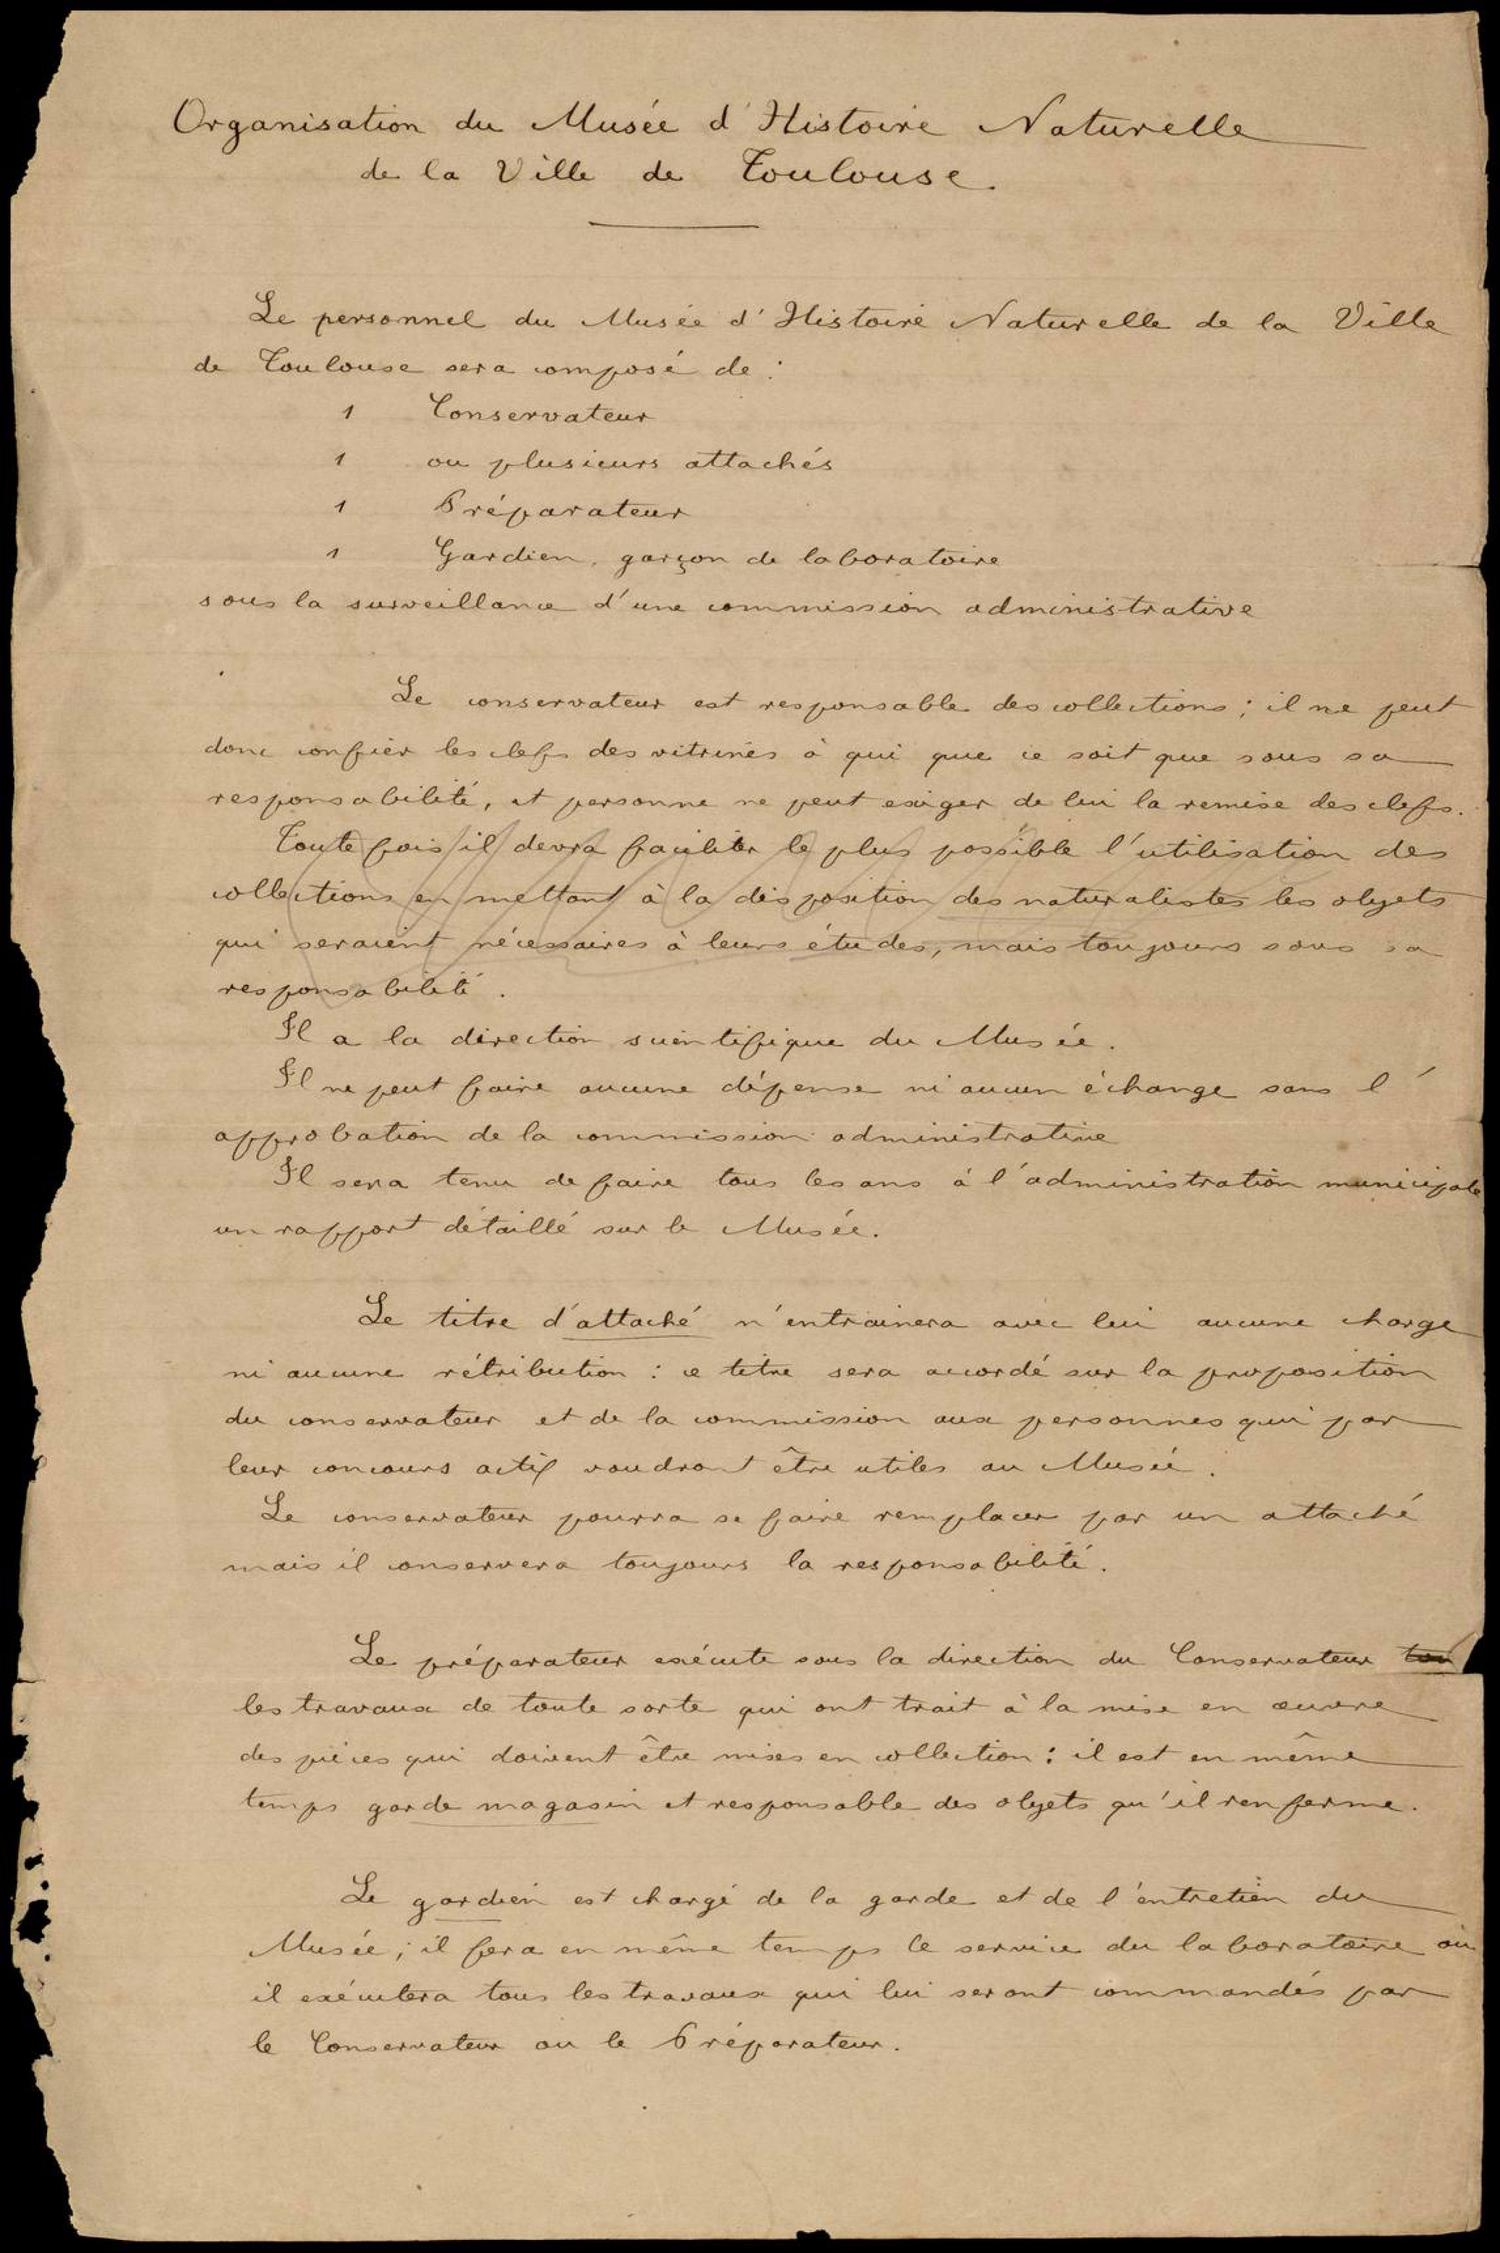 Organisation du Musée d'Histoire Naturelle
de la Ville de Toulouse.
Le personnel du Musée d'Histoire Naturelle de la Ville
de Toulouse sera composé de :
1 Conservateur
1 ou plusieurs attachés
1 Préparateur
1 Gardien, garçon de laboratoire
sous la surveillance d'une commission administrative
Le conservateur est responsable des collections ; il ne peut
donc confier les clefs des vitrines à qui que ce soit que sous sa
responsabilité, et personne ne peut exiger de lui la remise des clefs.
Toute fois il devra faciliter le plus possible l'utilisation des
collections en mettant à la disposition des naturalistes les objets
qui seraient nécessaires à leurs études, mais toujours sous sa
responsabilité.
Il a la direction scientifique du Musée.
Il ne peut faire aucune dépense ni aucun échange sans l'
approbation de la commission administrative
Il sera tenu de faire tous les ans à l'administration municipale
un rapport détaillé sur le Musée.
Le titre d'attaché n'entrainera avec lui aucune charge
ni aucune rétribution : ce titre sera accordé sur la proposition
du conservateur et de la commission aux personnes qui par
leur concours actif voudront être utiles au Musée.
Le conservateur pourra se faire remplacer par un attaché
mais il conservera toujours la responsabilité.
Le préparateur exécute sous la direction du Conservateur tou
les travaux de toute sorte qui ont trait à la mise en œuvre
des pièces qui doivent être mises en collection : il est en même
temps garde magasin et responsable des objets qu'il renferme.
Le gardien est chargé de la garde et de l'entretien du
Musée ; il fera en même temps le service du laboratoire où
il exécutera tous les travaux qui lui seront commandés par
le Conservateur ou le Préparateur.